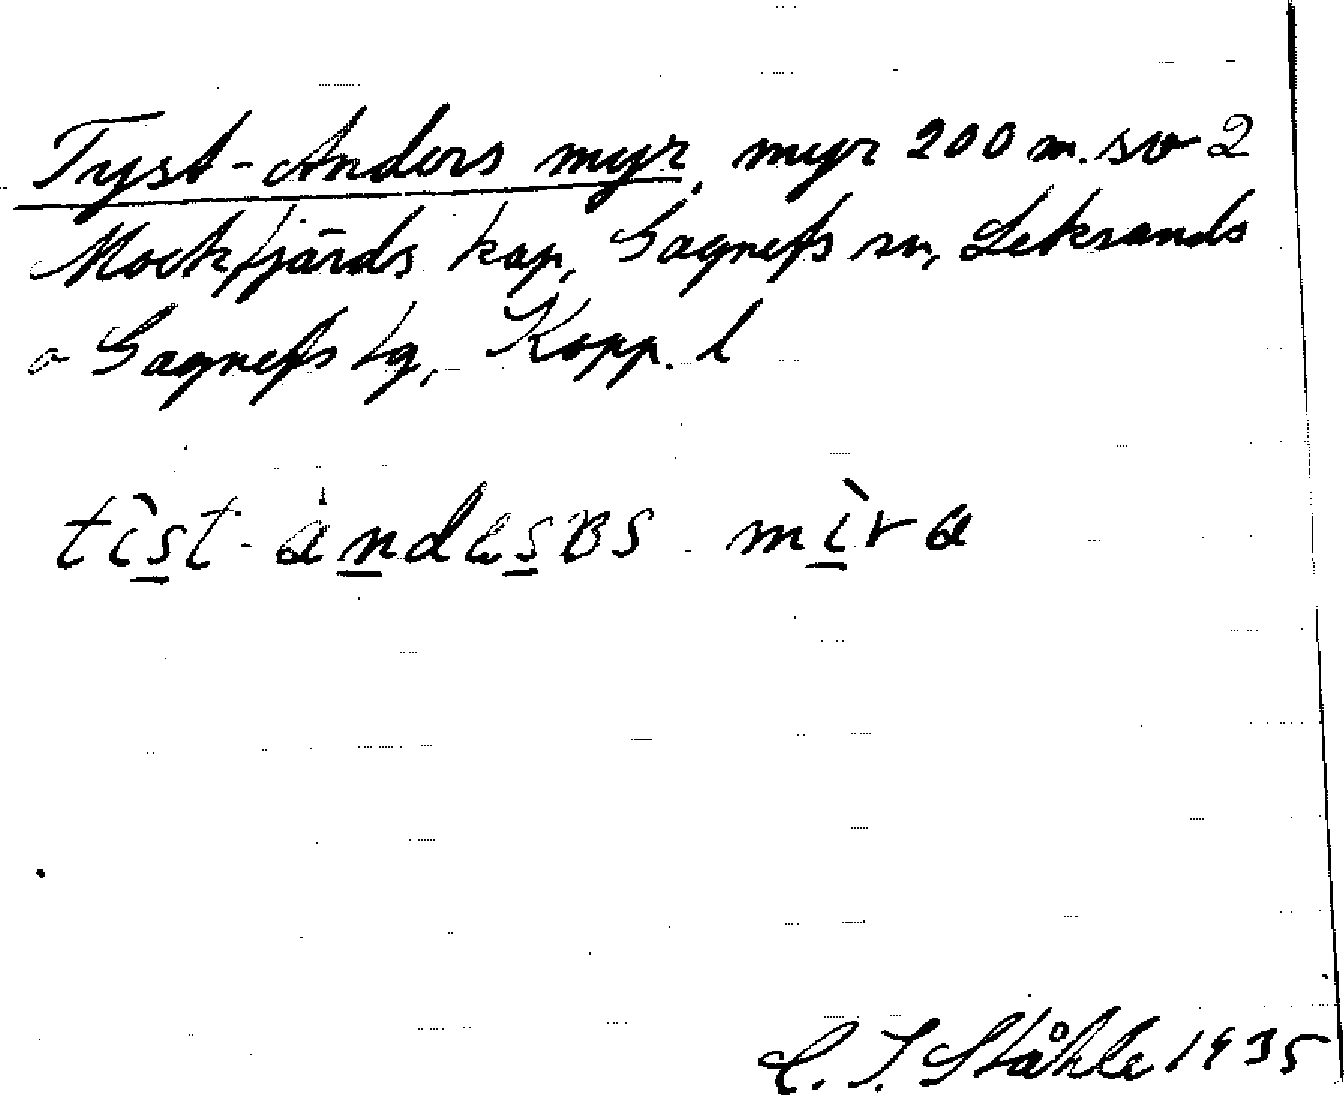 Tyst-Anders myr, myr 200 m. sv 2
Mockfjärds kap, Gagnefs sn, Leksands
o Gagnefs tg, Kopp. l
tist-
mìra
C. I. Ståhle 1935